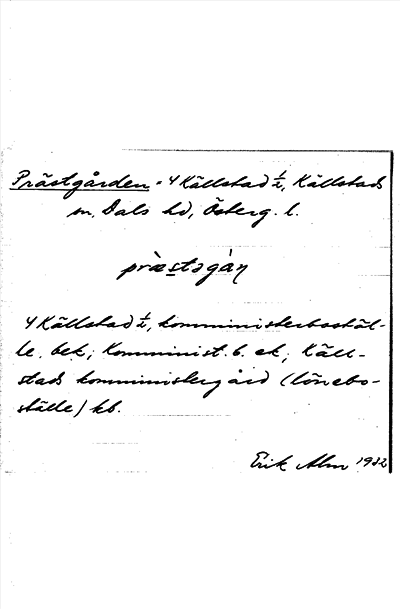 Prästgården = 4 Källstad ½, Källstads
sn, Dals hd, Österg. l.
præ̀stəgàṇ
4 Källstad ½, komministerbostäl-
le. bek; Komminist. b. ek; Käll-
stads komministergård (lönebo-
ställe) kb.
Erik Alm 1932